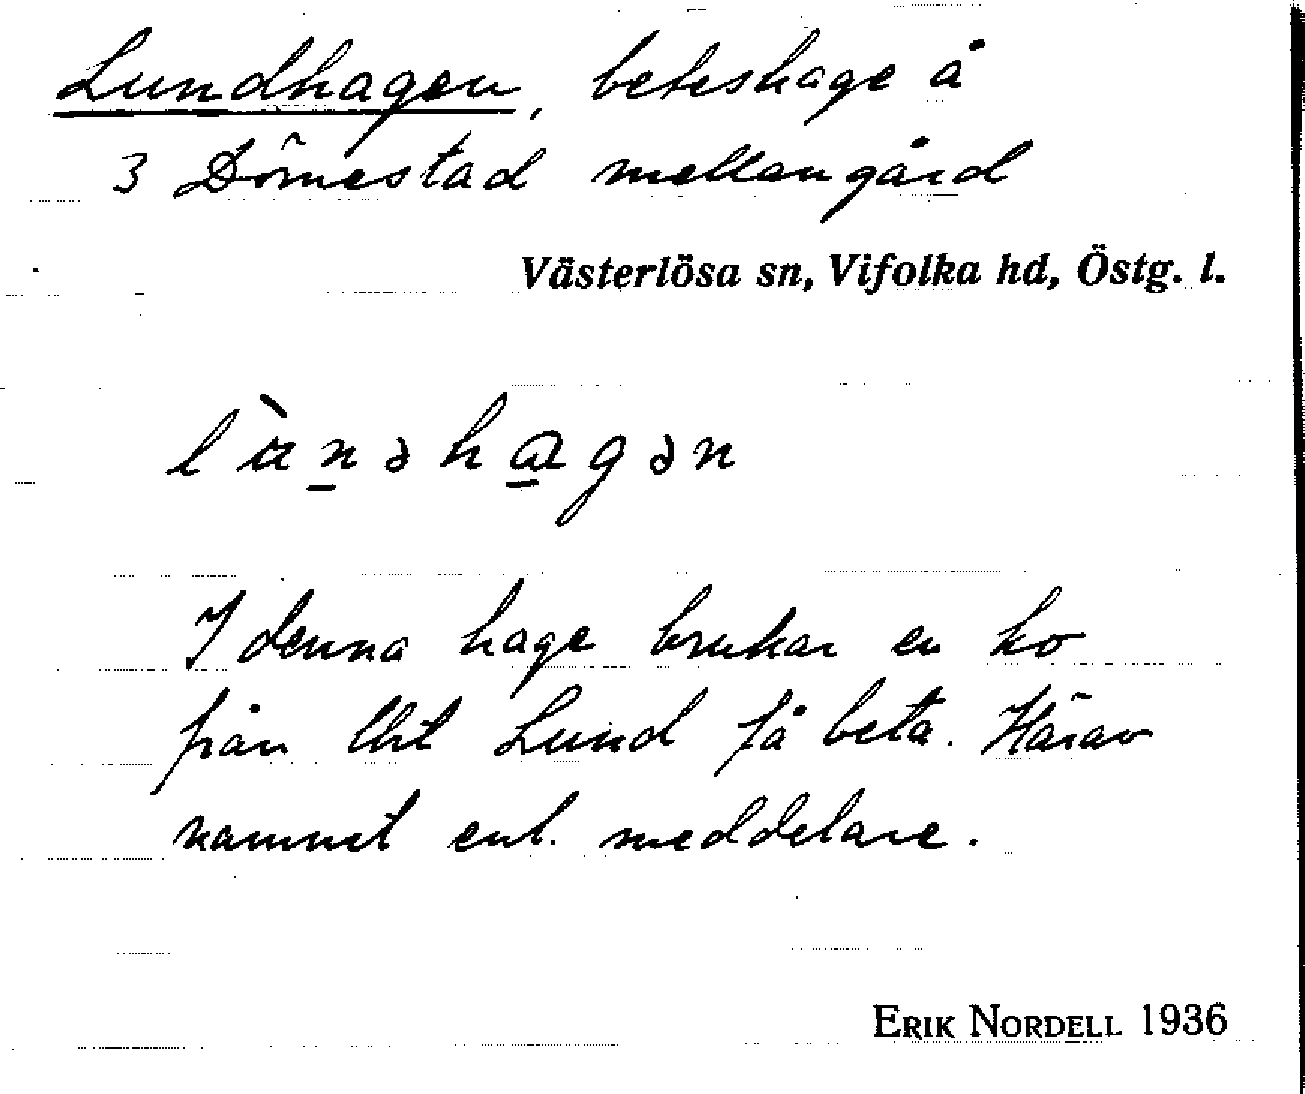 Lundhagen, beteshage å
3 Dömestad mellangård
Västerlösa sn, Vifolka hd, Östg. l.
I denna hage brukar en ko
från lht Lund få beta. Härav
namnet enl. meddelare.
ERIK NORDELL 1936